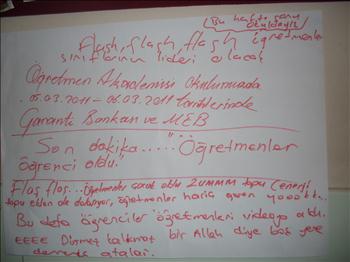 (Bu hafta sonu
Flash, flash, flash öğretmenler
sınıflarının lideri olacak
Öğretmen Akademisi Okulumuzda
05.03.2011 - 06.03.2011 tarihlerinde
Garanti Bankası ve MEB
Son dakika....." Öğretmenler
öğrenci oldu."
Flaş flaş... öğretmenler oldu zummm topu (enerji
topu elden ele dolaşıyor, öğretmenler hariç yoook...
Bu defa öğrenciler öğretmenleri videoya aldı.
EEEE Dinmez bir Allah diye boş yere
dememiş atalar.